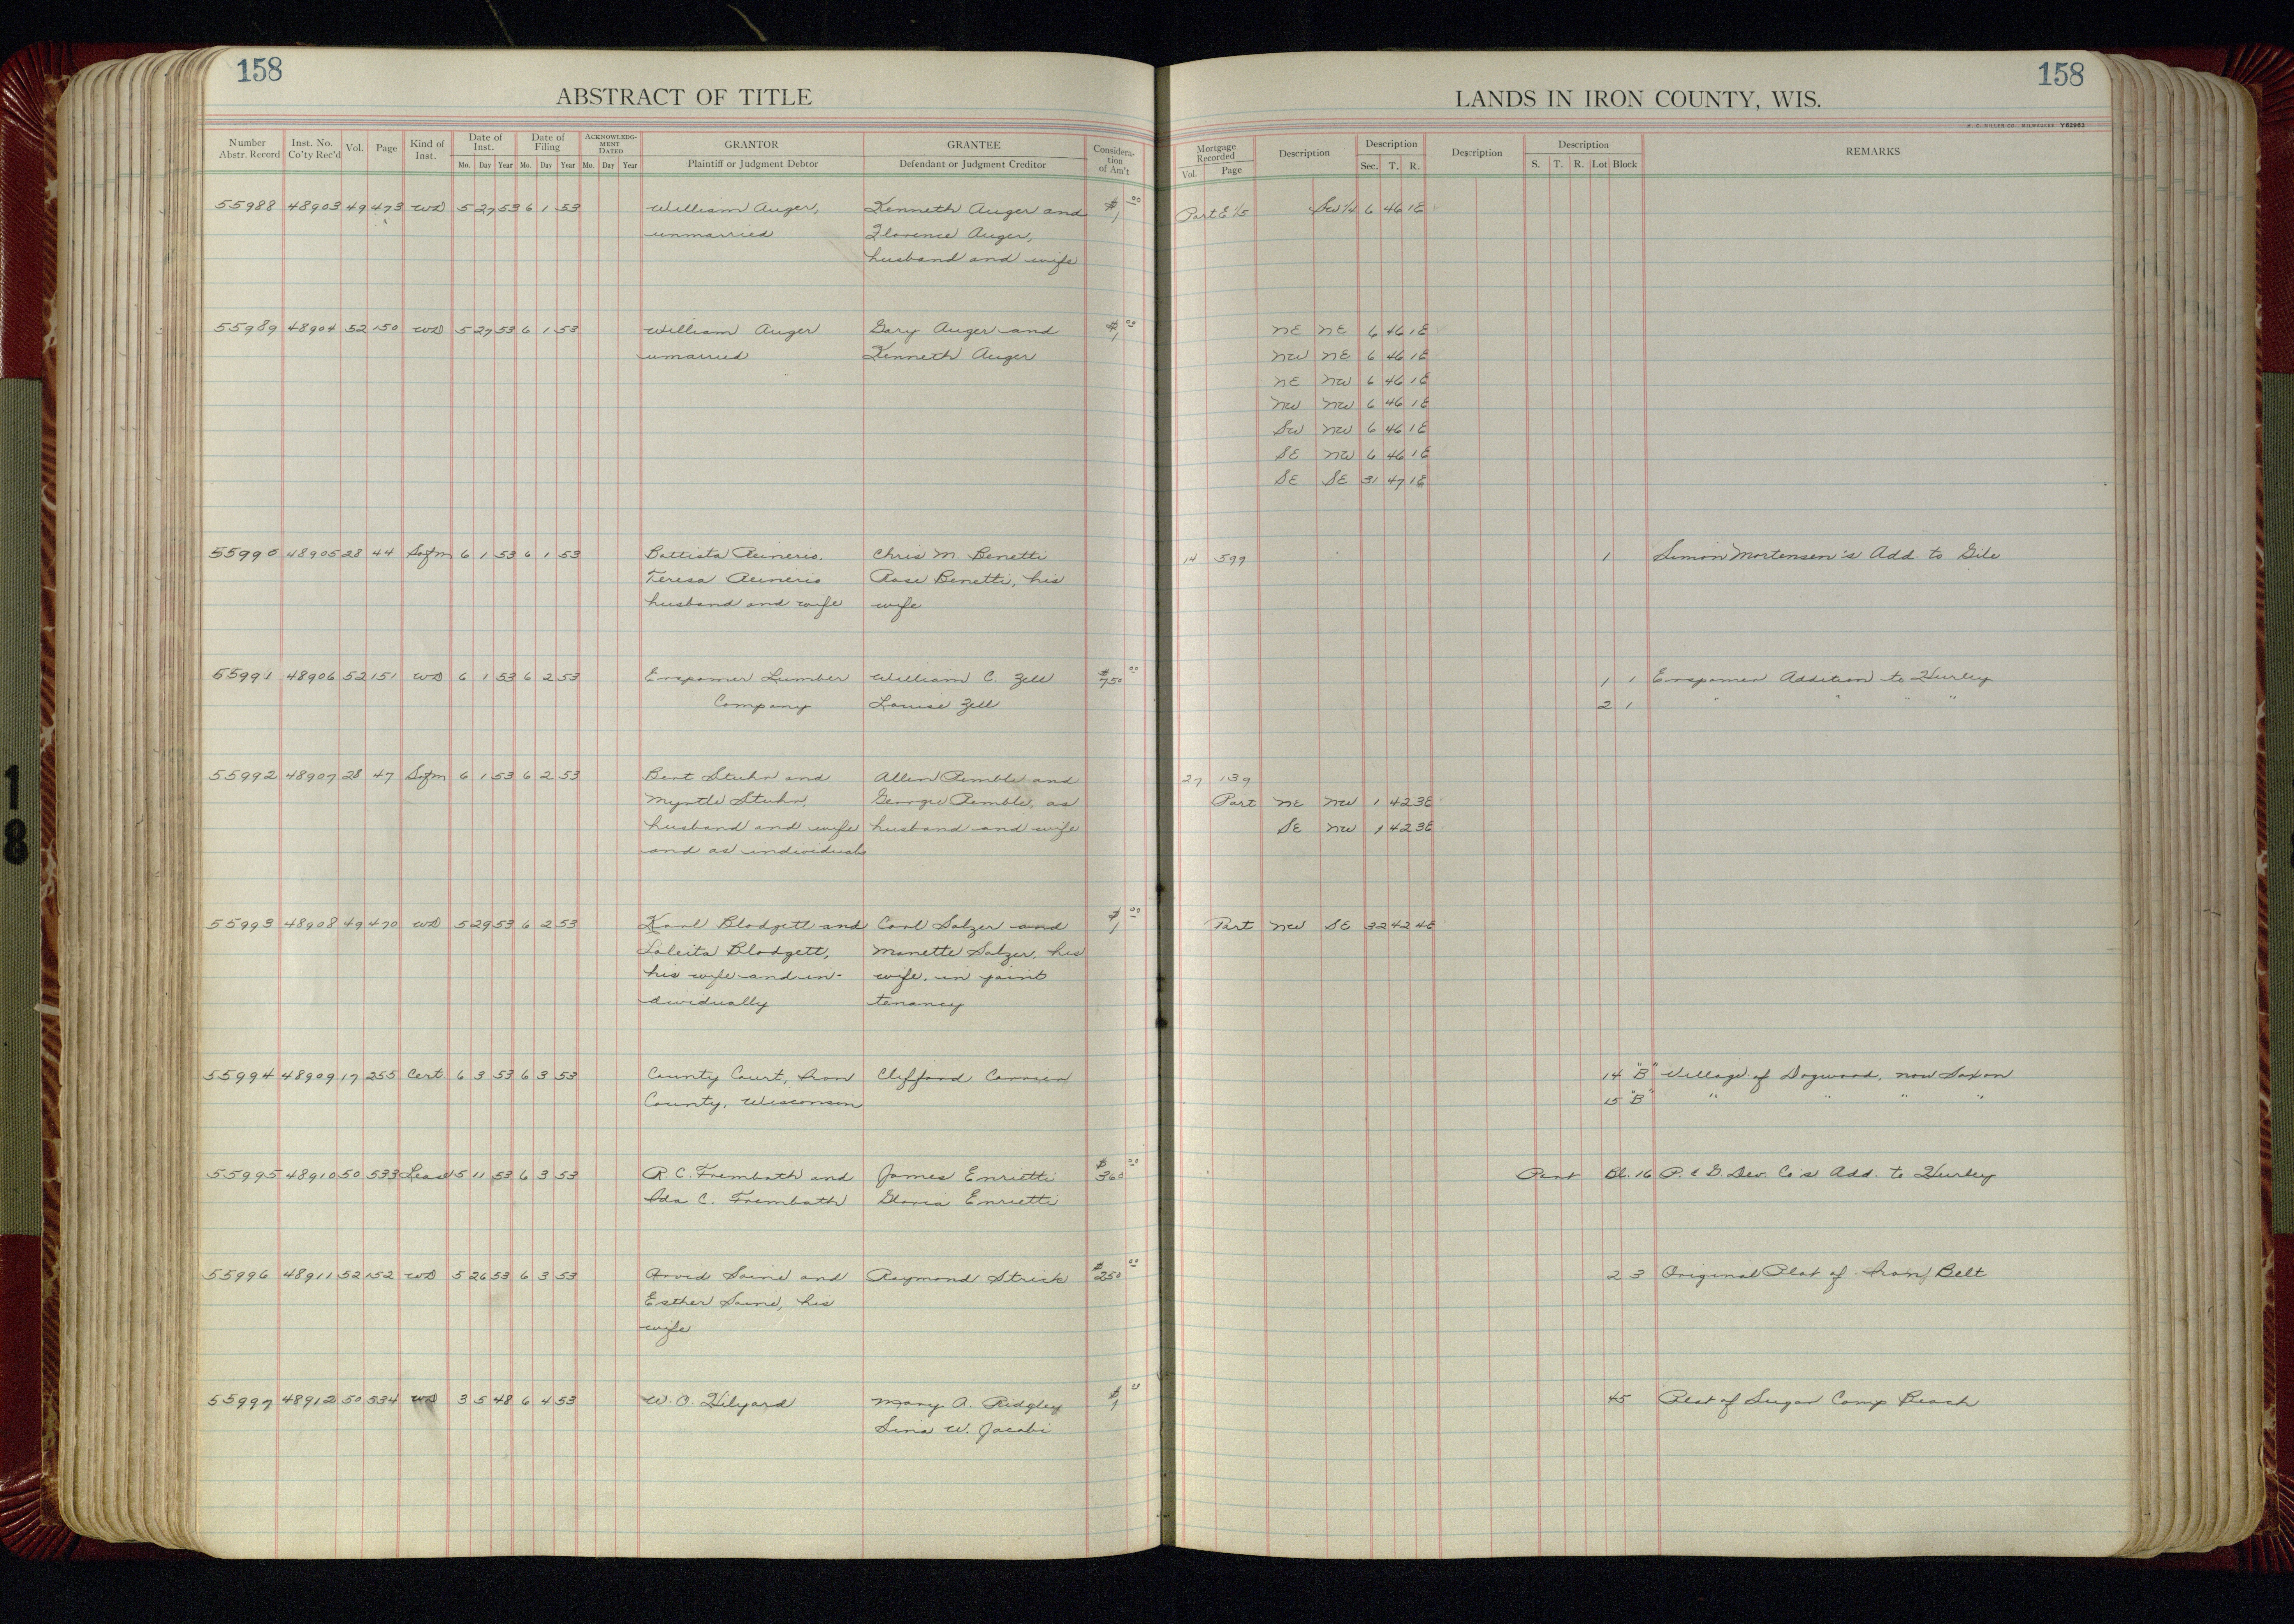 158
ABSTRACT OF TITLE
Number Abstr. Record | Inst. No. Co'ty Rec'd | Vol. | Page | Kind of Inst. | Date of Inst. Mo. Day Year | Date of Filing Mo. Day Year | ACKNOWLEDGMENT DATED Mo. Day Year | GRANTOR Plaintiff or Judgment Debtor | GRANTEE Defendant or Judgment Creditor | Consideration of Am't
158
LANDS IN IRON COUNTY, WIS.
H. C. MILLER CO., MILWAUKEE Y62963
Mortgage Recorded Vol. Page | Description | Description Sec. T. R. | Description | Description S. T. R. Lot Block | REMARKS
55988 48903 49 473 WD 5 27 53 6 1 53 William Auger, Kenneth Auger and $1 00 Part E 1/5 SW 1/4 6 46 1E
unmarried Florence Auger,
husband and wife
55989 48904 52 150 WD 5 27 53 6 1 53 William Auger Gary Auger and $1 00 NE NE 6 46 1E
umarried Kenneth Auger NW NE 6 46 1E
NE NW 6 46 1E
NW NW 6 46 1E
SW NW 6 46 1E
SE NW 6 46 1E
SE SE 31 47 1E
55990 48905 28 44 Sofm 6 1 53 6 1 53 Battista Chris M. Benetti 14 599 1 Simon Mortensen's Add to Gile
Teresa Rose Benetti, his
husband and wife wife
55991 48906 52 151 WD 6 1 53 6 2 53 Erspamer Lumber William C. Zell $750 00 1 1 Erspamer Addition to Hurley
Company Louise Zell 2 1 " " " "
55992 48907 28 47 Sofm 6 1 53 6 2 53 Bert Stuhr and Allen Remble and 27 139
Myrtle Stuhr, George Remble, as Part NE NW 1 42 3E
husband and wife husband and wife SE NW 1 42 3E
and as individuals
55993 48908 49 470 WD 5 29 53 6 2 53 Karl Blodgett and Carl Salzer and $1 00 Part NW SE 32 42 4E
Loleita Blodgett, Manette Salzer, his
his wife and in- wife, in joint
dividually tenancy
55994 48909 17 255 Cert 6 3 53 6 3 53 County Court, Iron Clifford 14 "B" Village of Dogwood, now Saxon
County, Wisconsin 15 "B" " " " "
55995 48910 50 533 Lease 5 11 53 6 3 53 R. C. Trembath and James Enrietti $360 00 Part Bl. 16 P. & G Dev. Co's Add. to Hurley
Ada C. Trembath Gloria Enrietti
55996 48911 52 152 WD 5 26 53 6 3 53 Arvid Saine and Raymond Strick $250 00 2 3 Original Plat of Iron Belt
Esther Saine, his
wife
55997 48912 50 534 WD 3 5 48 6 4 53 W. O. Hilyard Mary A. Ridgley $1 45 Plat of Sugar Camp Beach
Lina W. Jacobi
18